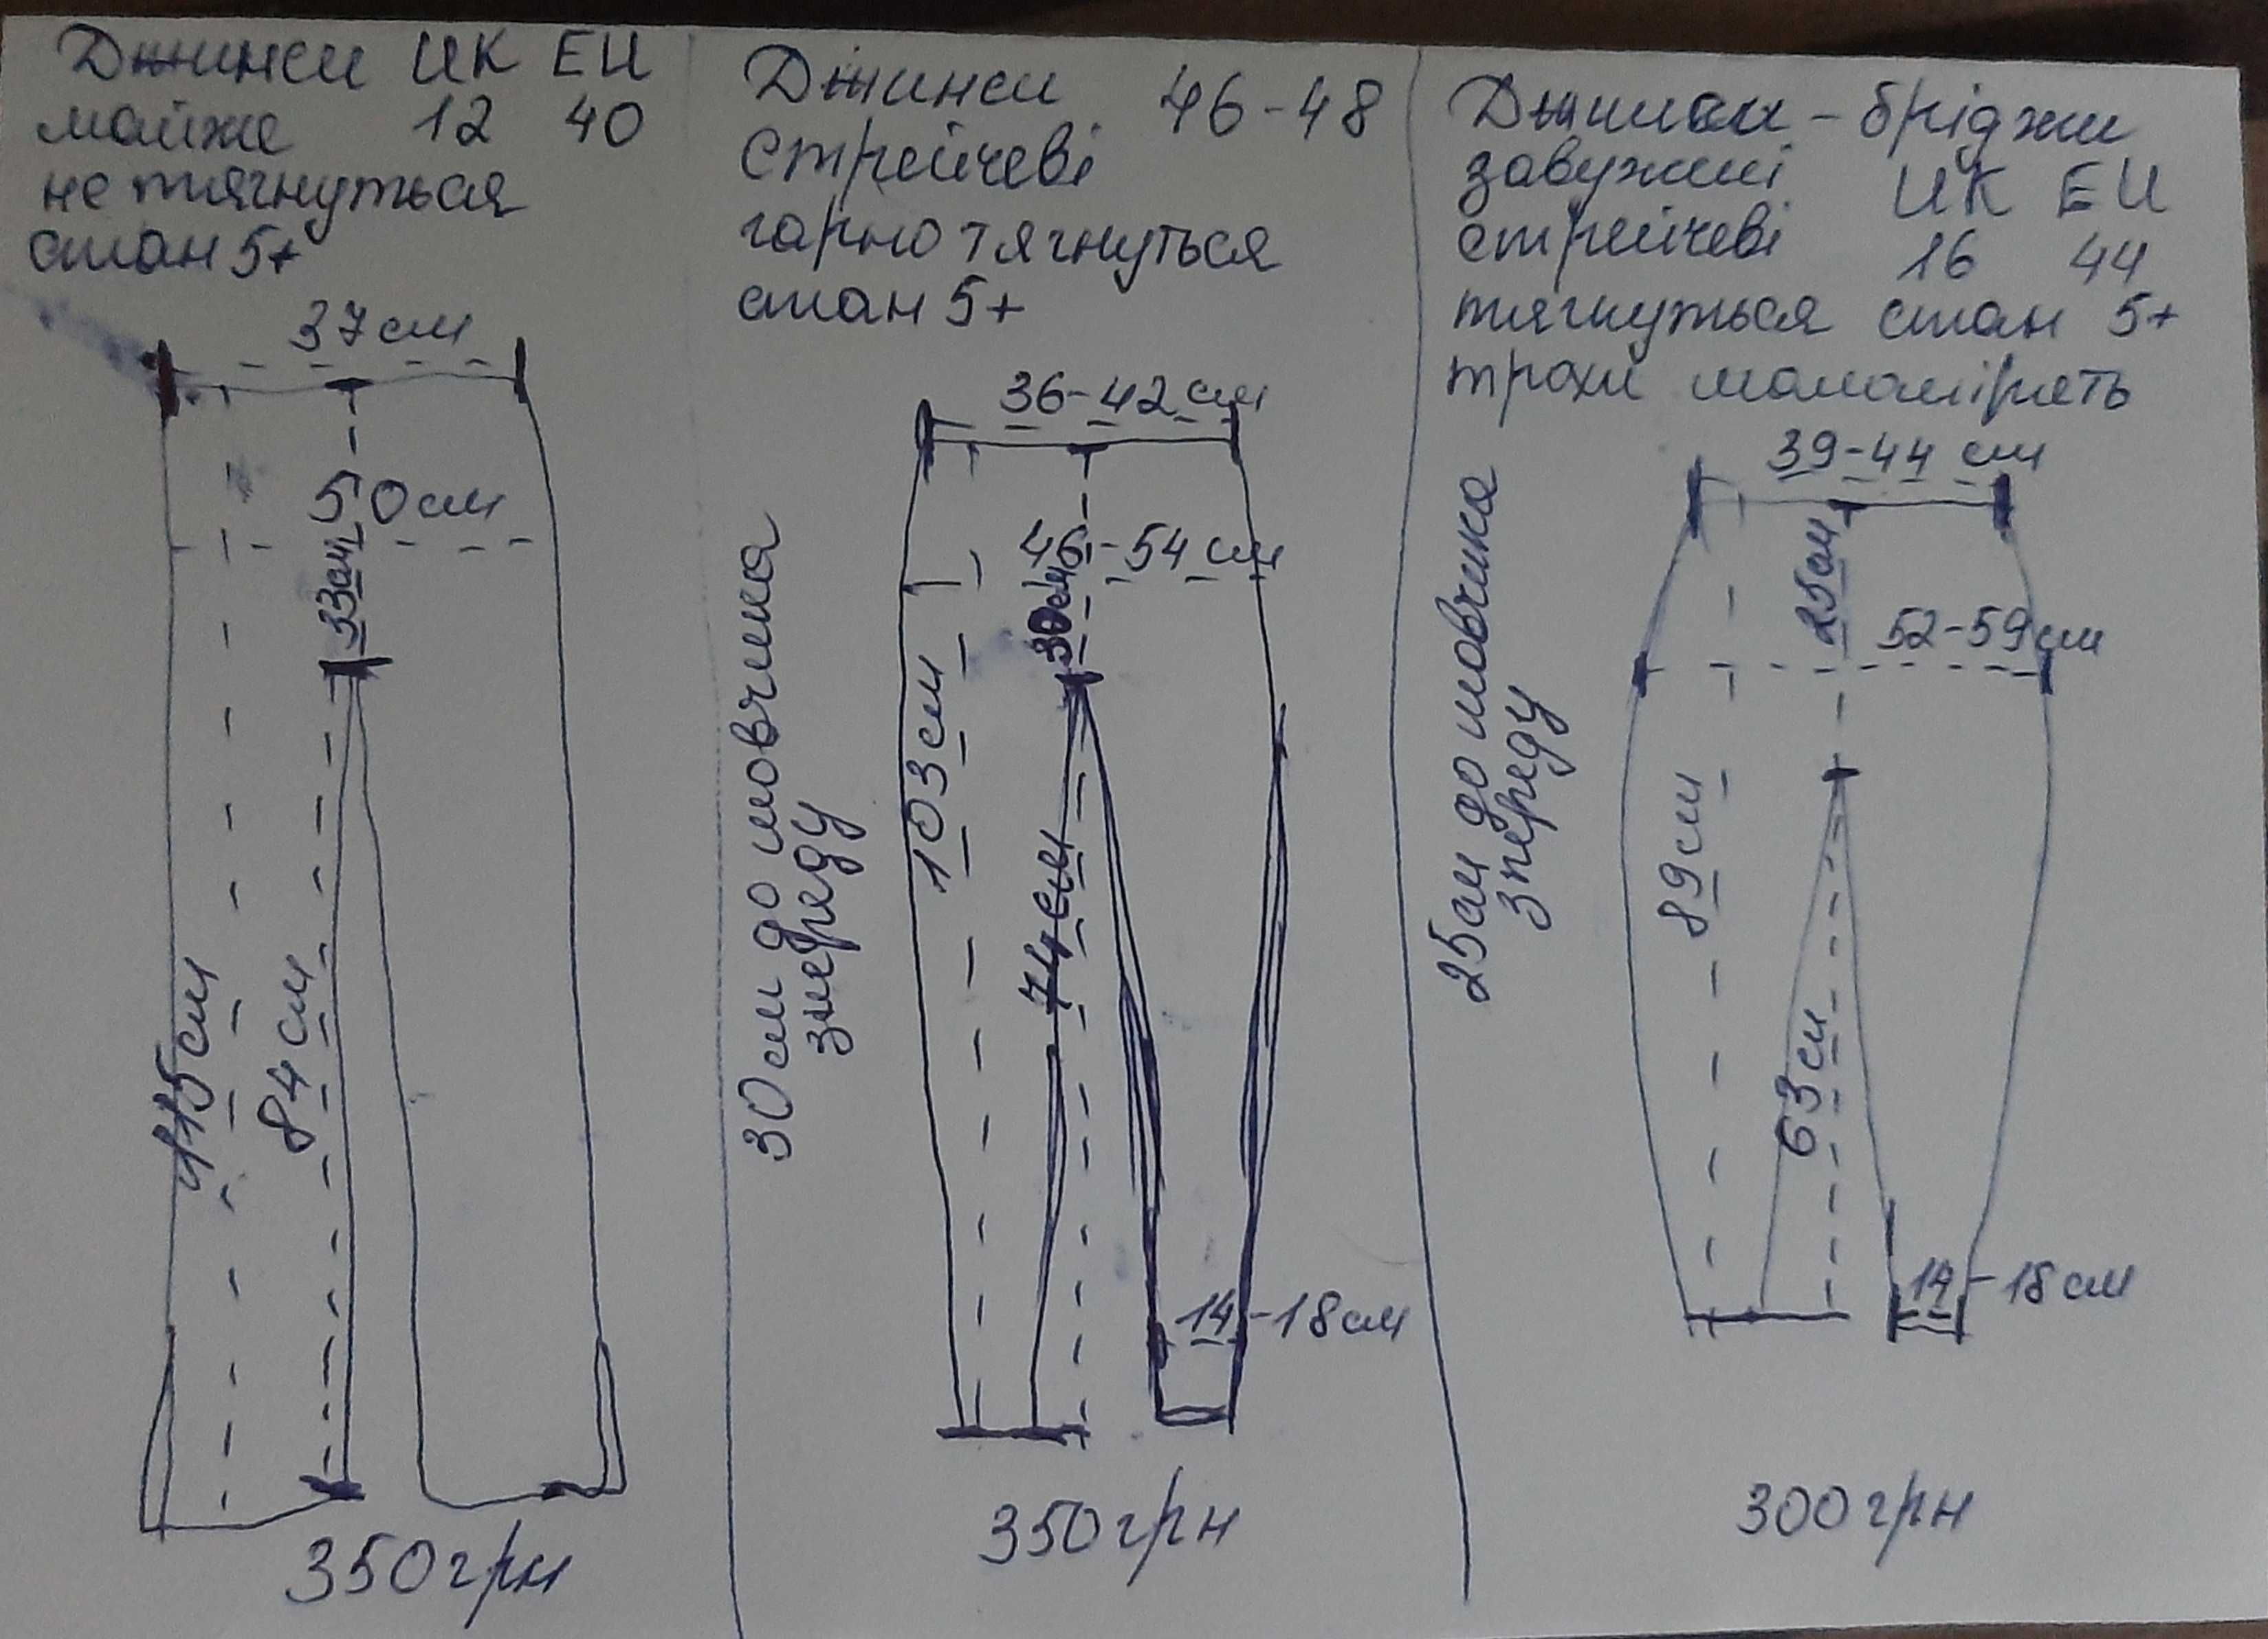 Джинси UK EU
майже 12 40
не тягнуться
стан 5+
37см
50см
33см
115см
84см
350грн
Джинси 46-48
стрейчеві
гарно тягнуться
стан 5+
36-42см
46-54см
30см
103см
74см
30см до шовчика
зпереду
14-18см
350грн
Джинси-бріджи
завужині UK EU
стрейчеві 16 44
тягнуться стан 5+
трохи маломірять
39-44 см
25см
52-59см
89см
63см
25см до шовчика
зпереду
14-18см
300грн